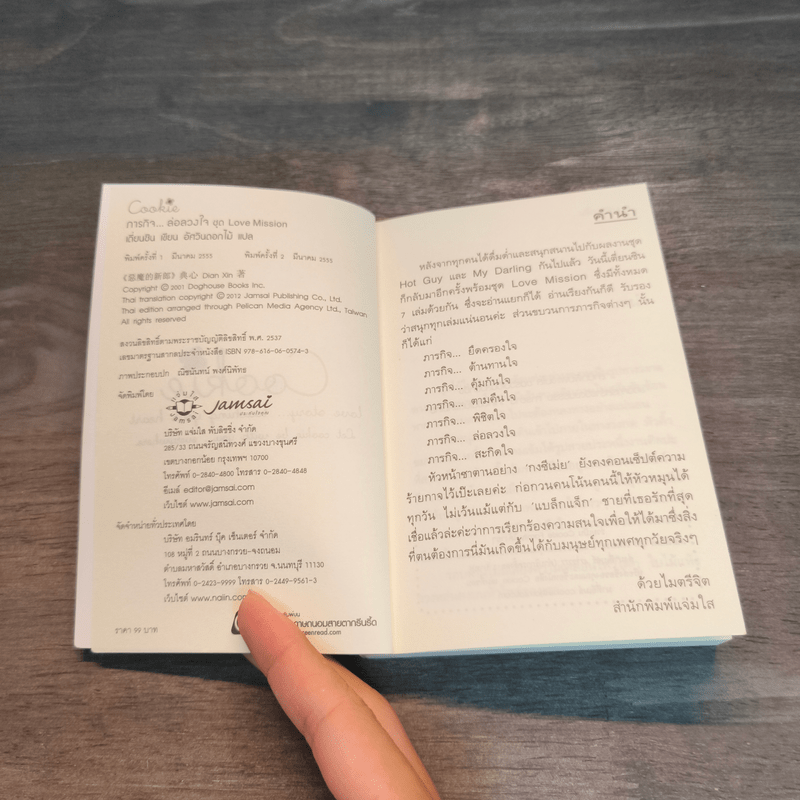 Cookie
ภารกิจ... ล่อลวงใจ ชุด Love Mission
เตี่ยนซิน เขียน อัศวินดอกไม้ แปล
พิมพ์ครั้งที่ 1 มีนาคม 2555 พิมพ์ครั้งที่ 2 มีนาคม 2555
《惡魔的新郎》典心 Dian Xin 著
Copyright © 2001 Doghouse Books Inc.
Thai translation copyright © 2012 Jamsai Publishing Co., Ltd.
Thai edition arranged through Pelican Media Agency Ltd., Taiwan
All rights reserved
สงวนลิขสิทธิ์ตามพระราชบัญญัติลิขสิทธิ์ พ.ศ. 2537
เลขมาตรฐานสากลประจำหนังสือ ISBN 978-616-06-0574-3
ภาพประกอบปก ณิชนันทน์ พงศ์นิพัทธ
จัดพิมพ์โดย
แจ่มใส
jamsai
Jamsai
บริษัท แจ่มใส พับลิชชิ่ง จำกัด
285/33 ถนนจรัญสนิทวงศ์ แขวงบางขุนศรี
เขตบางกอกน้อย กรุงเทพฯ 10700
โทรศัพท์ 0-2840-4800 โทรสาร 0-2840-4848
อีเมล์ editor@jamsai.com
เว็บไซต์ www.jamsai.com
จัดจำหน่ายทั่วประเทศโดย
บริษัท อมรินทร์ บุ๊ค เซ็นเตอร์ จำกัด
108 หมู่ที่ 2 ถนนบางกรวย-จงถนอม
ตำบลมหาสวัสดิ์ อำเภอบางกรวย จ.นนทบุรี 11130
โทรศัพท์ 0-2423-9999 โทรสาร 0-2449-9561-3
เว็บไซต์ www.naiin.com
ถนอมสายตากรีนรี้ด
ราคา 99 บาท
คำนำ
หลังจากทุกคนได้ดื่มด่ำและสนุกสนานไปกับผลงานชุด
Hot Guy และ My Darling กันไปแล้ว วันนี้เตี่ยนซิน
ก็กลับมาอีกครั้งพร้อมชุด Love Mission ซึ่งมีทั้งหมด
7 เล่มด้วยกัน ซึ่งจะอ่านแยกก็ได้ อ่านเรียงกันก็ดี รับรอง
ว่าสนุกทุกเล่มแน่นอนค่ะ ส่วนขบวนการภารกิจต่างๆ นั้น
ก็ได้แก่
ภารกิจ... ยึดครองใจ
ภารกิจ... ต้านทานใจ
ภารกิจ... คุ้มกันใจ
ภารกิจ... ตามคืนใจ
ภารกิจ... พิชิตใจ
ภารกิจ... ล่อลวงใจ
ภารกิจ... สะกิดใจ
หัวหน้าซาตานอย่าง ‘กงซีเมี่ย’ ยังคงคอนเซ็ปต์ความ
ร้ายกาจไว้เป๊ะเลยค่ะ ก่อกวนคนโน้นคนนี้ให้หัวหมุนได้
ทุกวัน ไม่เว้นแม้แต่กับ ‘แบล็กแจ็ก’ ชายที่เธอรักที่สุด
เชื่อแล้วล่ะค่ะว่าการเรียกร้องความสนใจเพื่อให้ได้มาซึ่งสิ่ง
ที่ตนต้องการนี่มันเกิดขึ้นได้กับมนุษย์ทุกเพศทุกวัยจริงๆ
ด้วยไมตรีจิต
สำนักพิมพ์แจ่มใส